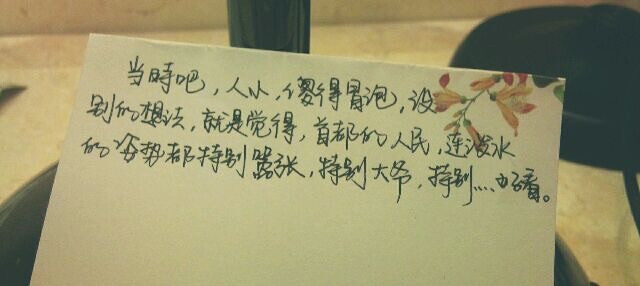 当時吧，人小，傻得冒泡，没
别的想法，就是觉得，首都的人民，连泼水
的姿势都特别嚣张，特别大爷，特别....好看。